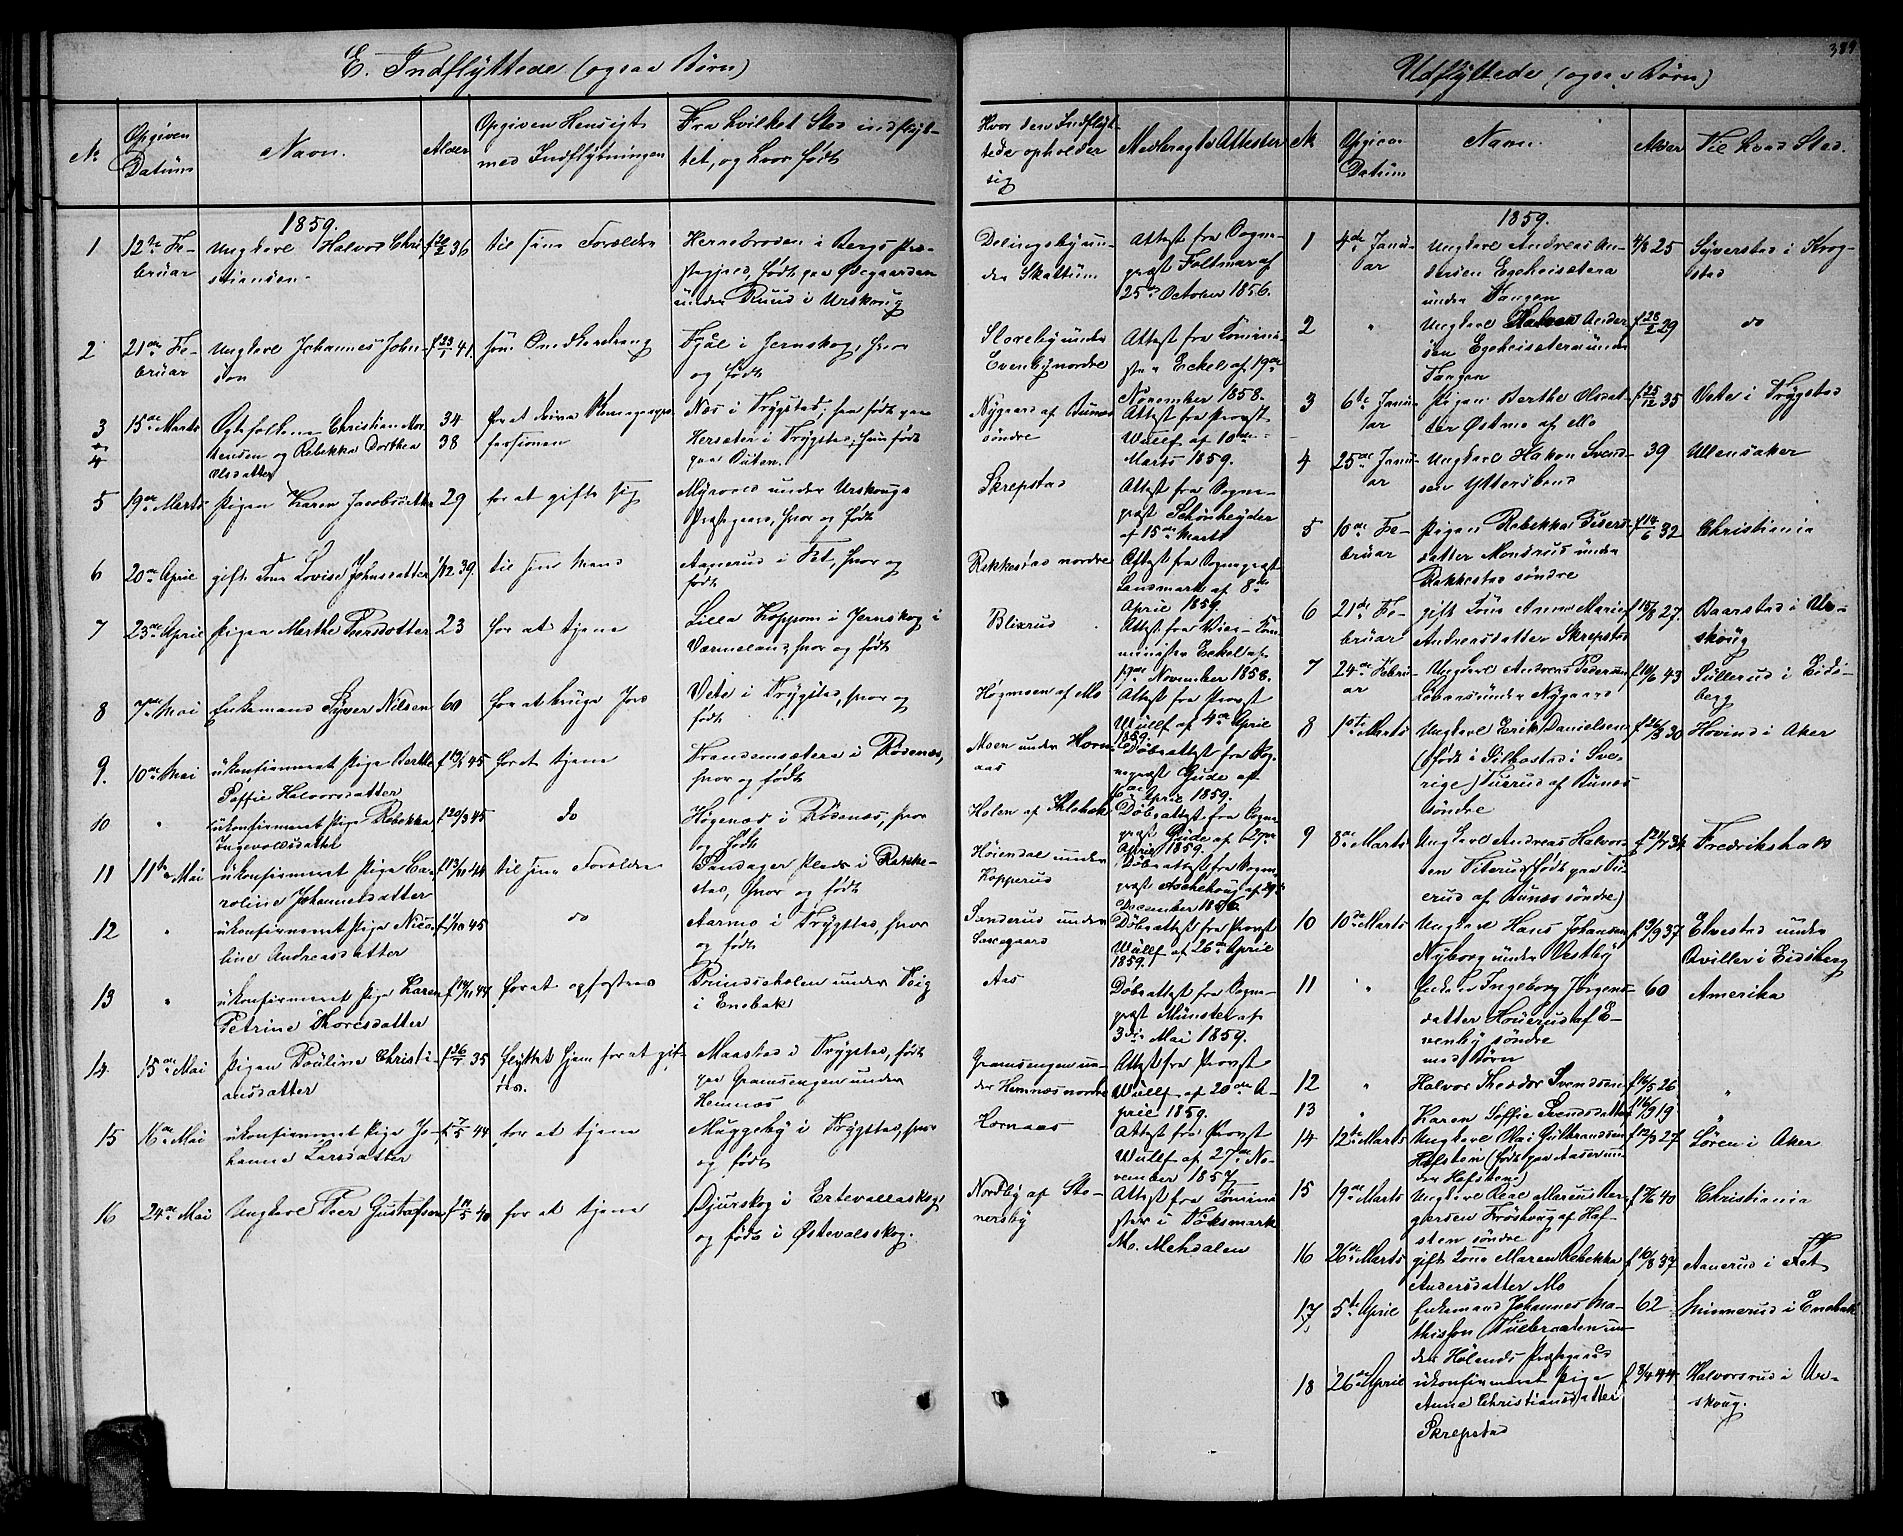 389
E. Indflyttede (ogsaa Børn)
No
Opgiven
Datum
Navn.
Alder
Opgiven Hensigt
med Indflytningen
Fra hvilket Sted indflyt-
tet, og hvor født
Hvor den Indflyt-
tede opholder
sig
Medbragte Attester
1859.
1
12te Fe-
bruar
Ungkarl Halvor Chri-
stiansen.
36
til sine Forældre
Herrebrøden i Bergs Præ-
stegjeld, født paa Ødegaarden
under Ruud i Urskoug
Delingsby un-
der Skattum
Attest fra Sogne-
præst Foltmar af
25de October 1856.
2
21de Fe-
bruar
Ungkarl Johannes John-
sen
f 23/1 41
som Smedkerdreng
Fjøl i Jernskog, hvor
og født
Storeby under
Evenby nordre
Attest fra Kommini-
ster Eckel af 19de
November 1858.
3
4
15de Marts
Ægtefolkene Christian Mor-
tensen og Rebekka Dorthea
Olsdatter
34
38
for at drive Skomagerpro-
fessionen
Næs i Trygstad; han født paa
Hersæter i Trygstad, hun født
paa Puten.
Nygaard af Bunæs
søndre
Attest fra Provst
Wulff af 10de
Marts 1859.
5
19de Marts
Pigen Karen Jacobsdatter
29
for at gifte sig
Myrvold under Urskougs
Præstegaard, hvor og født
Skrepstad
Attest fra Sogne-
præst Schönheyder
af 15de Marts
6
20de April
gift Kone Lovise Johnsdatter
39.
til sin Mand
Aanerud i Fet, hvor og
født
Rækkestad nordre
Attest fra Sognepræst
Landmark af 8de
April 1859.
7
23de April
Pigen Marthe Persdatter
23
for at tjene
Lilla Koppom i Jernskog i
Værmeland, hvor og født
Blixrud
Attest fra Vice-Kom-
minister Eckel af
19de November 1858.
8
7de Mai
Enkemand Syver Nilsen
60
for at bruge Jord
Vete i Trygstad, hvor og
født
Høgmoen af Mo
Attest fra Provst
Wulff af 4de April
1859.
9.
10de Mai
ukonfirmeret Pige Berthe
Soffie Halvorsdatter
45
for at tjene
Brandsmæteren i Rødenæs,
hvor og født
Moen under Horn-
aas
Døbeattest fra Sog-
nepræst Gude af
6te April 1859.
10
"
ukonfirmeret Pige Rebekka
Ingevoldsdatter
f 20/3 45
do
Høgenæs i Rødenæs, hvor
og født
Holen af Skolebæk
Døbeattest fra Sogne-
præst Gude af 27de
April 1859.
11
11te Mai
ukonfirmeret Pige Ca-
roline Johannesdatter
f 13/11 44
til sine Forældre
Sandager Plads i Rakke-
stad, hvor og født
Høiendal under
Kopperud
Døbeattest fra Sogne-
præst Aschehoug af 29de
December 1856.
12
"
ukonfirmeret Pige Nico-
line Andreasdatter
45
do
Aarmo i Trygstad, hvor
og født
Sanderud under
Saxegaard
Døbeattest fra Provst
Wulff af 26de April
1859.
13
"
ukonfirmeret Pige Karen
Petrine Thoresdatter
44
for at opfostres
Prindsehølen under Vig
i Enebak
Aas
Døbeattest fra Sogne-
præst Münster af
3die Mai 1859.
14
15de Mai
Pigen Pouline Christi-
ansdatter
f 26/7 35
flyttet hjem for at gif-
tes.
Maastad i Trygstad, født
paa Gramsengen under
Hemnæs
Gramsengen un-
der Hemnæs nordre
Attest fra Provst
Wulff af 20de A-
pril 1859.
15
16de Mai
ukonfirmeret Pige Jo-
hanne Larsdatter
f 7/5 44
for at tjene
Muggeby i Trygstad, hvor
og født
Hornaas
Attest fra Provst
Wulff af 27de No-
vember 1857.
16
24de Mai
Ungkarl Peer Gustafsen
40
for at tjene
Djurskog i Ertevallaskog
og født i Østevalsskog.
Nordby af Sto-
nersby
Attest fra Kommini-
ster i Töksmark
M. Mehdalen
Udflyttede (ogsaa Børn)
No
Opgiven
Datum
Navn.
Alder
Til hvad Sted.
1859.
1
4de Janu-
ar
Ungkarl Andreas An-
dersen Egeheisætera
under Tangen
4/8 25
Syverstad i Krog-
stad
2
"
Ungkarl Ander-
sen Egeheisætern under
Tangen
f 28/2 29
do
3
6te Janu-
ar
Pigen Berthe Olsdat-
ter Østmo af Mo
f 25/12 35
Vete i Trygstad
4
25de Janu-
ar
Ungkarl Hakon Svend-
sen Yttersbend
39
Ullensaker
5
10de Fe-
bruar
Pigen Rebekka Peders-
datter Monsrud under
Rakkestad søndre
f 14/6 32
Christiania
6
21de Fe-
bruar
gift Kone Anne Marie
Andreasdatter Skrepstad
f 15/8 27.
Baarstad i Ur-
skoug
7
24de Febru-
ar
Ungkarl Andreas Pedersen
under Nygaard
43
Sullerud i Eids-
berg
8
1ste Marts
Ungkarl Erik Danielsen
(født i Silbostad i Sve-
rige) Tuerud af Bunæs
søndre
30
Hovind i Aker
9
8de Marts
Ungkarl Andreas Halvor-
sen Viterud (født paa Tu-
erud af Bunæs søndre)
34
Fredrikshald
10
10de Marts
Ungkarl Hans Johansen
Nyborg under Vestby
37
Elvestad under
Qviller i Eidsberg
11
"
Enken Ingeborg Jørgens-
datter Houerud af E-
venby søndre
med Børn
60
Amerika
12
"
Halvor Theodor Svendsen
26
"
13
"
Karen Soffie Svendsdatter
f 16/9 19
"
14
12te Marts
Ungkarl Olai Gulbrandsen
Hafstein (født paa Aaserud un-
der Hafsten)
27
Søren i Aker
15
19de Marts
Ungkarl Karl Marcus Ber-
gersen Frøshoug af Haf-
sten søndre
40
Christiania
16
26de Marts
gift Kone Maren Rebekka
Andersdatter Mo
f 10/8 37
Aanerud i Fet
17
5te April
Enkemand Johannes Ma-
thisson Tuebraaten un-
der Hølands Præstegaard
62
Minnerud i Enebak
18
26de April
ukonfirmeret Pige
Anne Christiansdatter
Skrepstad
f 3/4 44
Halvorsrud i Ur-
skoug.